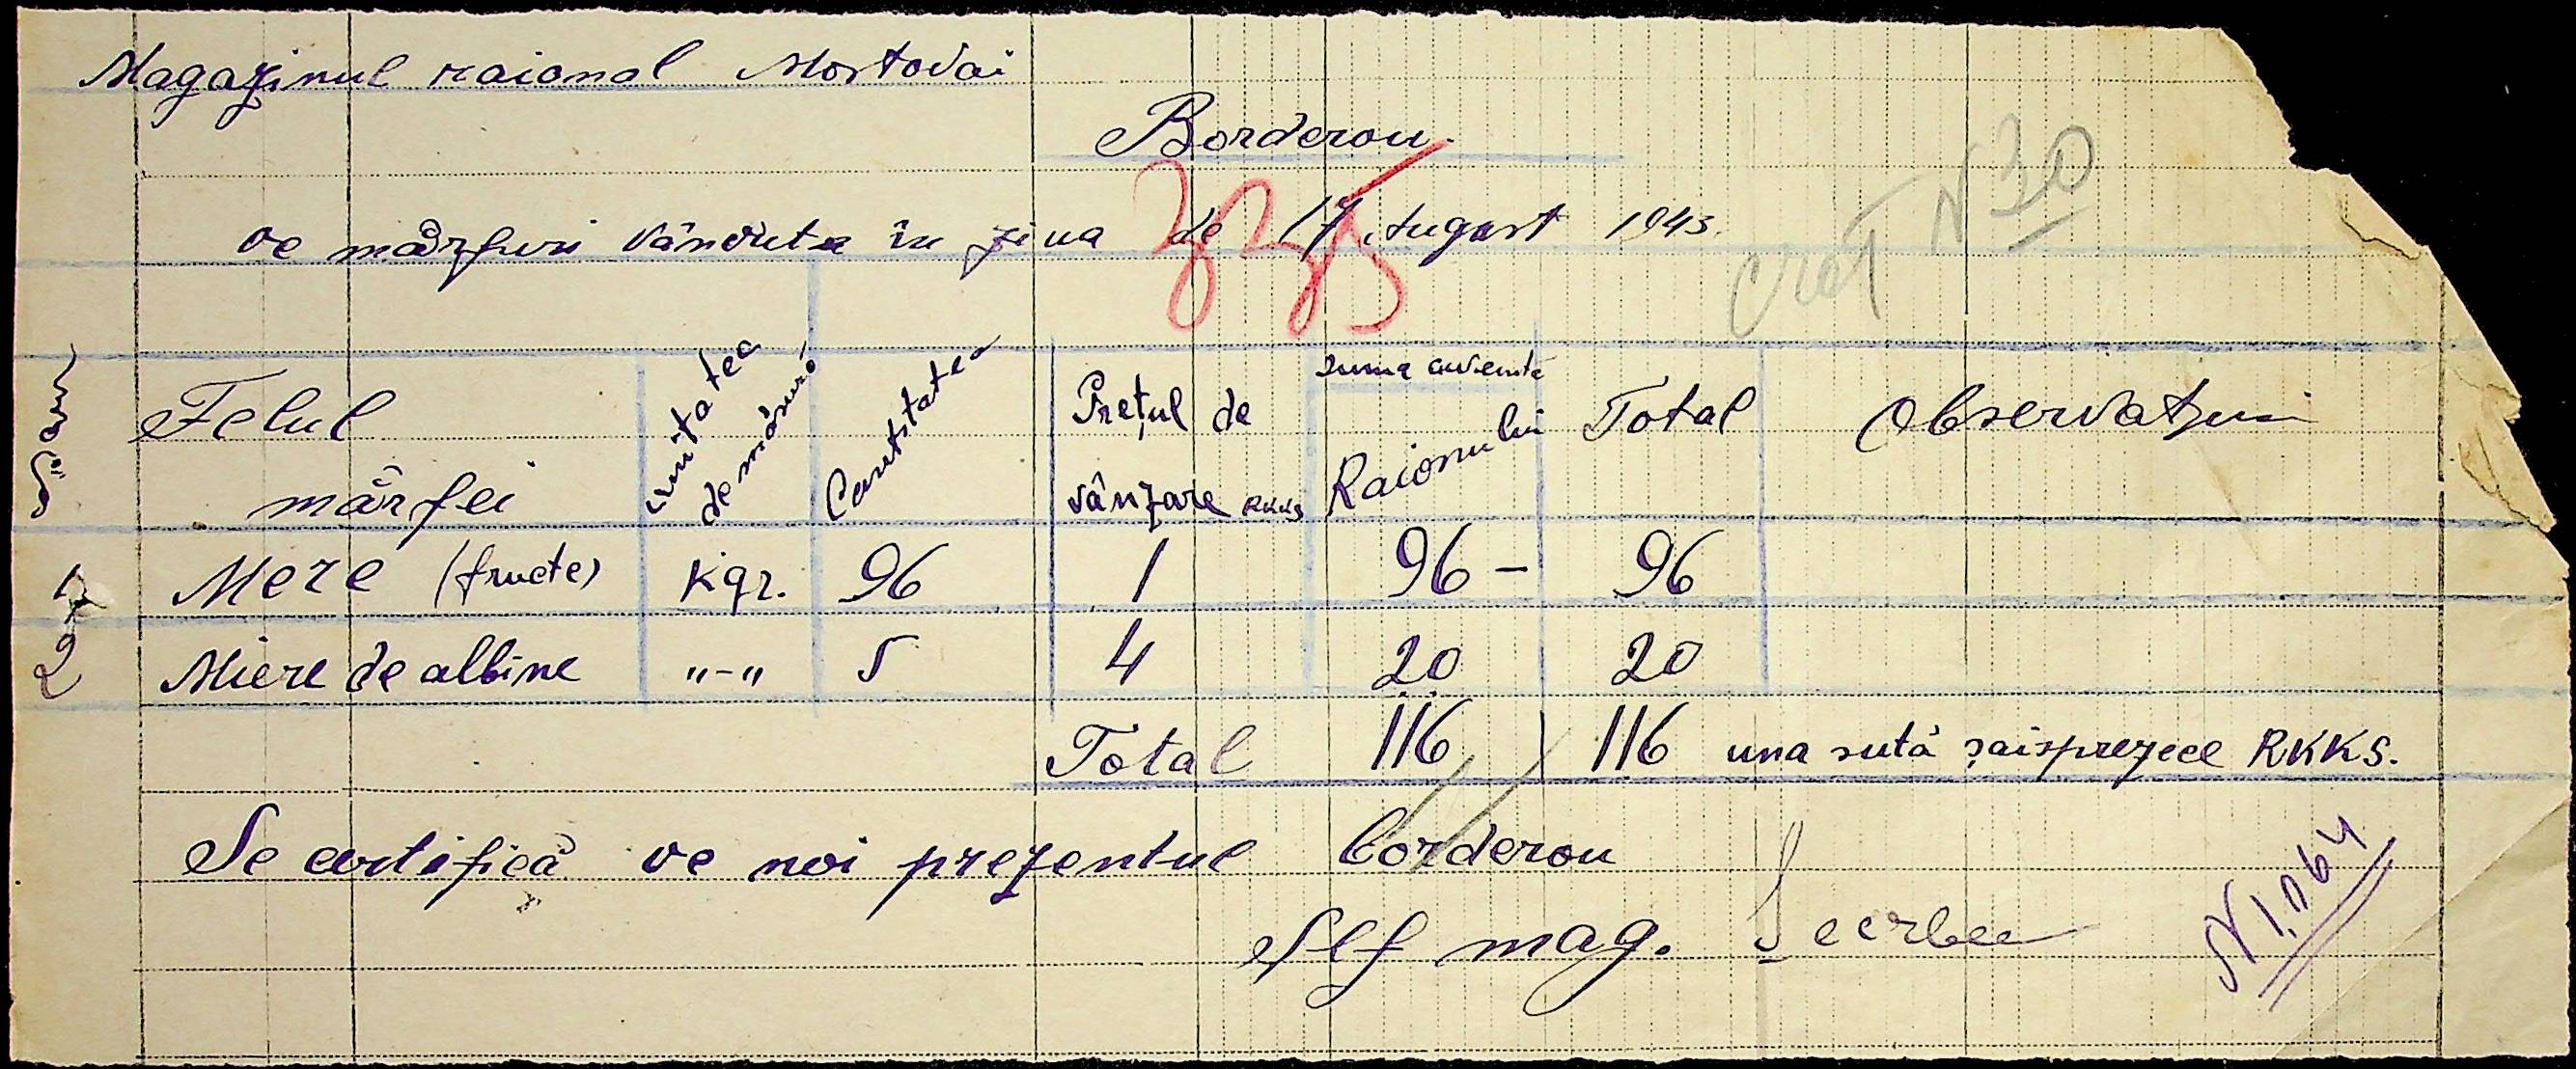 Magazinul raional Mostovoi
Borderou
de mărfuri vândute în ziua de 17 August 1943.
N 30
Felul mărfei Unitatea de măsură Cantitatea Prețul de vânzare RKKS Suma cuvenită Raionului Total Observațiuni
1 Mere (fructe) Kgr. 96 1 96 – 96
2 Miere de albine "-" 5 4 20 20
Total 116 116 una sută șaisprezece RKKS.
Se certifică de noi prezentul borderou
Șef mag.